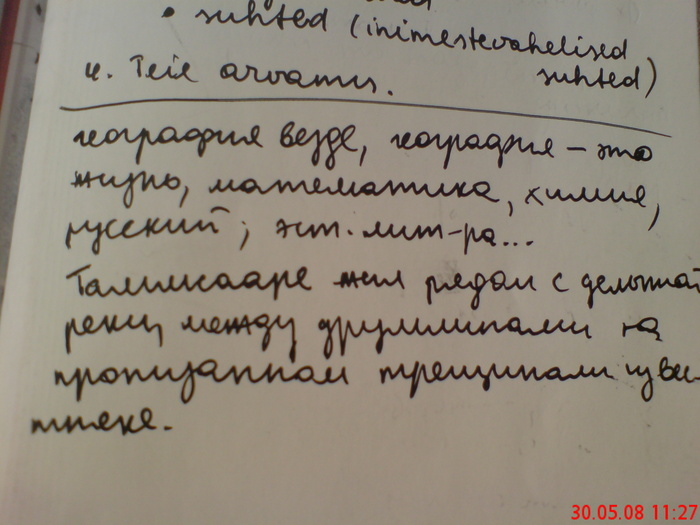 • suhted (inimestevahelised
suhted)
4. Teie arvamus.
география везде, география – это
жизнь, математика, химия,
русский, эст. лит-ра...
Таммсааре жил рядом с дельтой
реки между друмлинами на
пронизанном трещинами изве-
стняке.
30.05.08 11:27